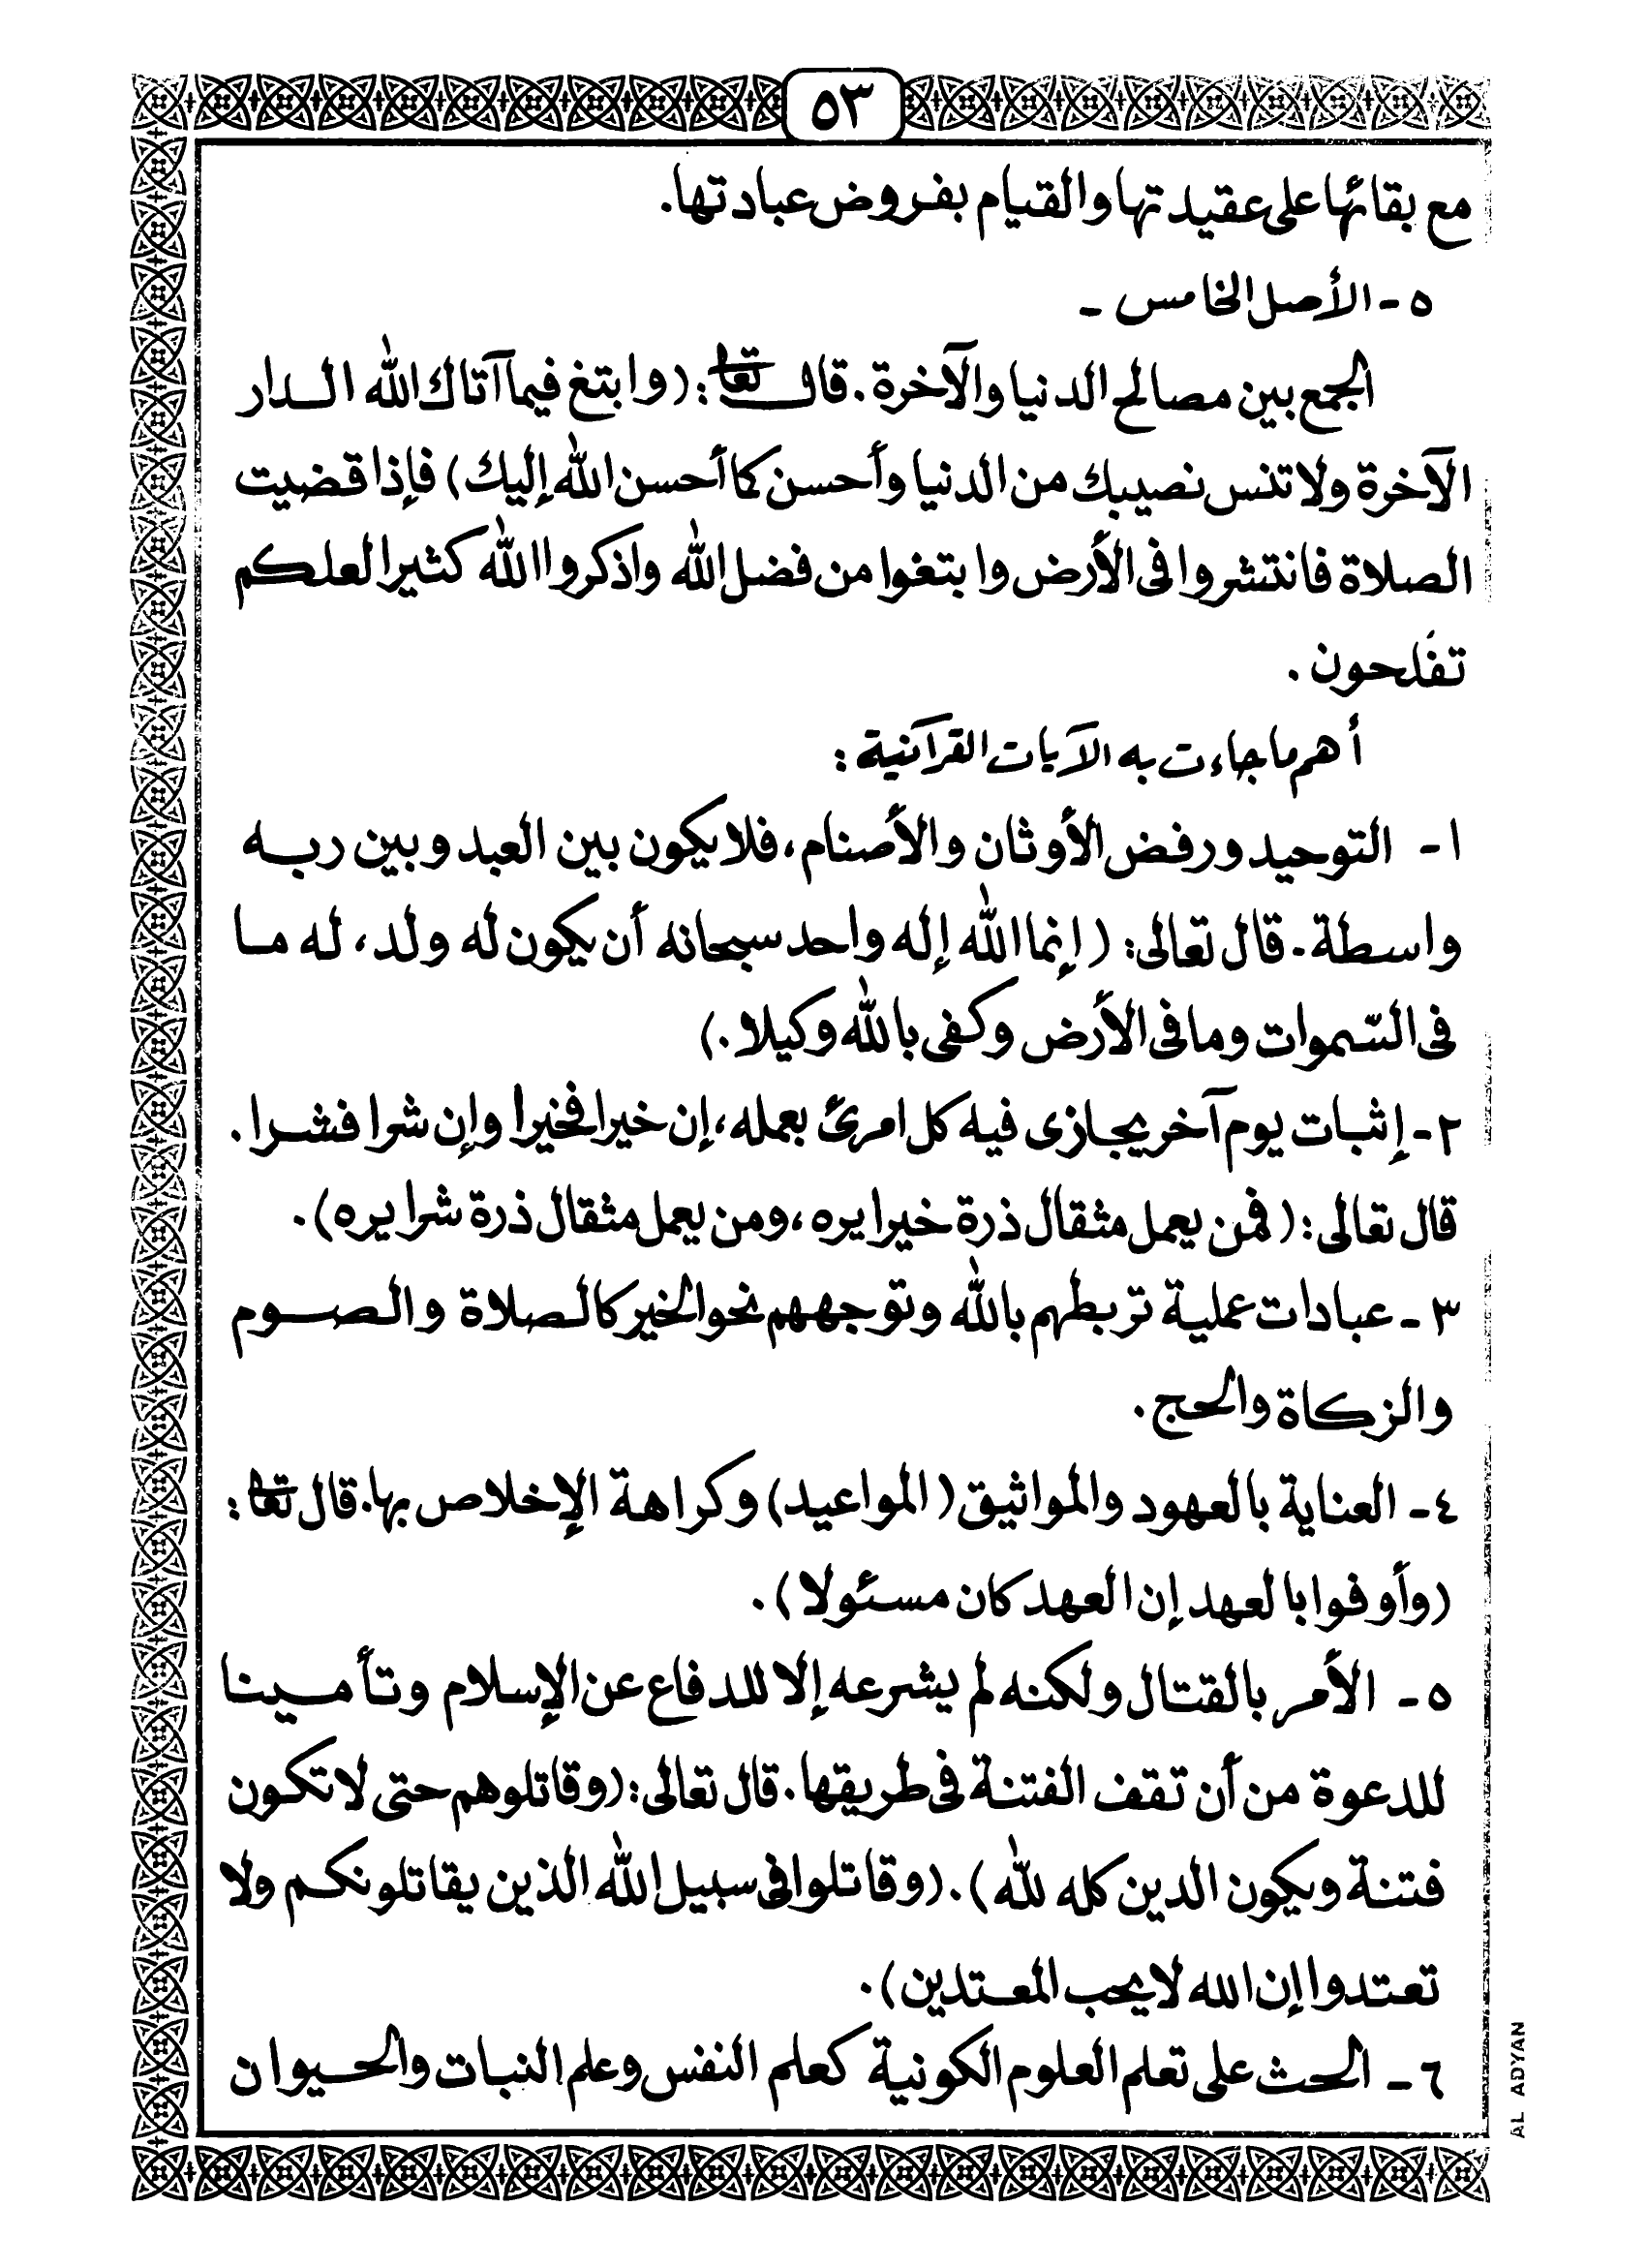 ٥٣
مع بقائها على عقيدتها والقيام بفروض عبادتها.
٥ - الأصل الخامس -
الجمع بين مصالح الدنيا والآخرة. قال تعالى: (وابتغ فيما آتاك الله الدار
الآخرة ولا تنس نصيبك من الدنيا وأحسن كما أحسن الله إليك) فإذا قضيت
الصلاة فانتشروا في الأرض وابتغوا من فضل الله واذكروا الله كثيرا لعلكم
تفلحون.
أهم ما جاءت به الآيات القرآنية:
١ - التوحيد ورفض الأوثان والأصنام، فلا يكون بين العبد وبين ربه
واسطة. قال تعالى: (إنما الله إله واحد سبحانه أن يكون له ولد، له ما
في السموات وما في الأرض وكفى بالله وكيلا.)
٢ - إثبات يوم آخر يجازى فيه كل امرئ بعمله، إن خيرا فخيرا وإن شرا فشرا.
قال تعالى: (فمن يعمل مثقال ذرة خيرا يره، ومن يعمل مثقال ذرة شرا يره).
٣ - عبادات عملية تربطهم بالله وتوجههم نحو الخير كالصلاة والصوم
والزكاة والحج.
٤ - العناية بالعهود والمواثيق (المواعيد) وكراهة الإخلاص بها. قال تعالى:
(وأوفوا بالعهد إن العهد كان مسئولا).
٥ - الأمر بالقتال ولكنه لم يشرعه إلا للدفاع عن الإسلام وتأمينا
للدعوة من أن تقف الفتنة في طريقها. قال تعالى: (وقاتلوهم حتى لا تكون
فتنة ويكون الدين كله لله). (وقاتلوا في سبيل الله الذين يقاتلونكم ولا
تعتدوا إن الله لا يحب المعتدين).
٦ - الحث على تعلم العلوم الكونية كعلم النفس وعلم النبات والحيوان
AL ADYAN